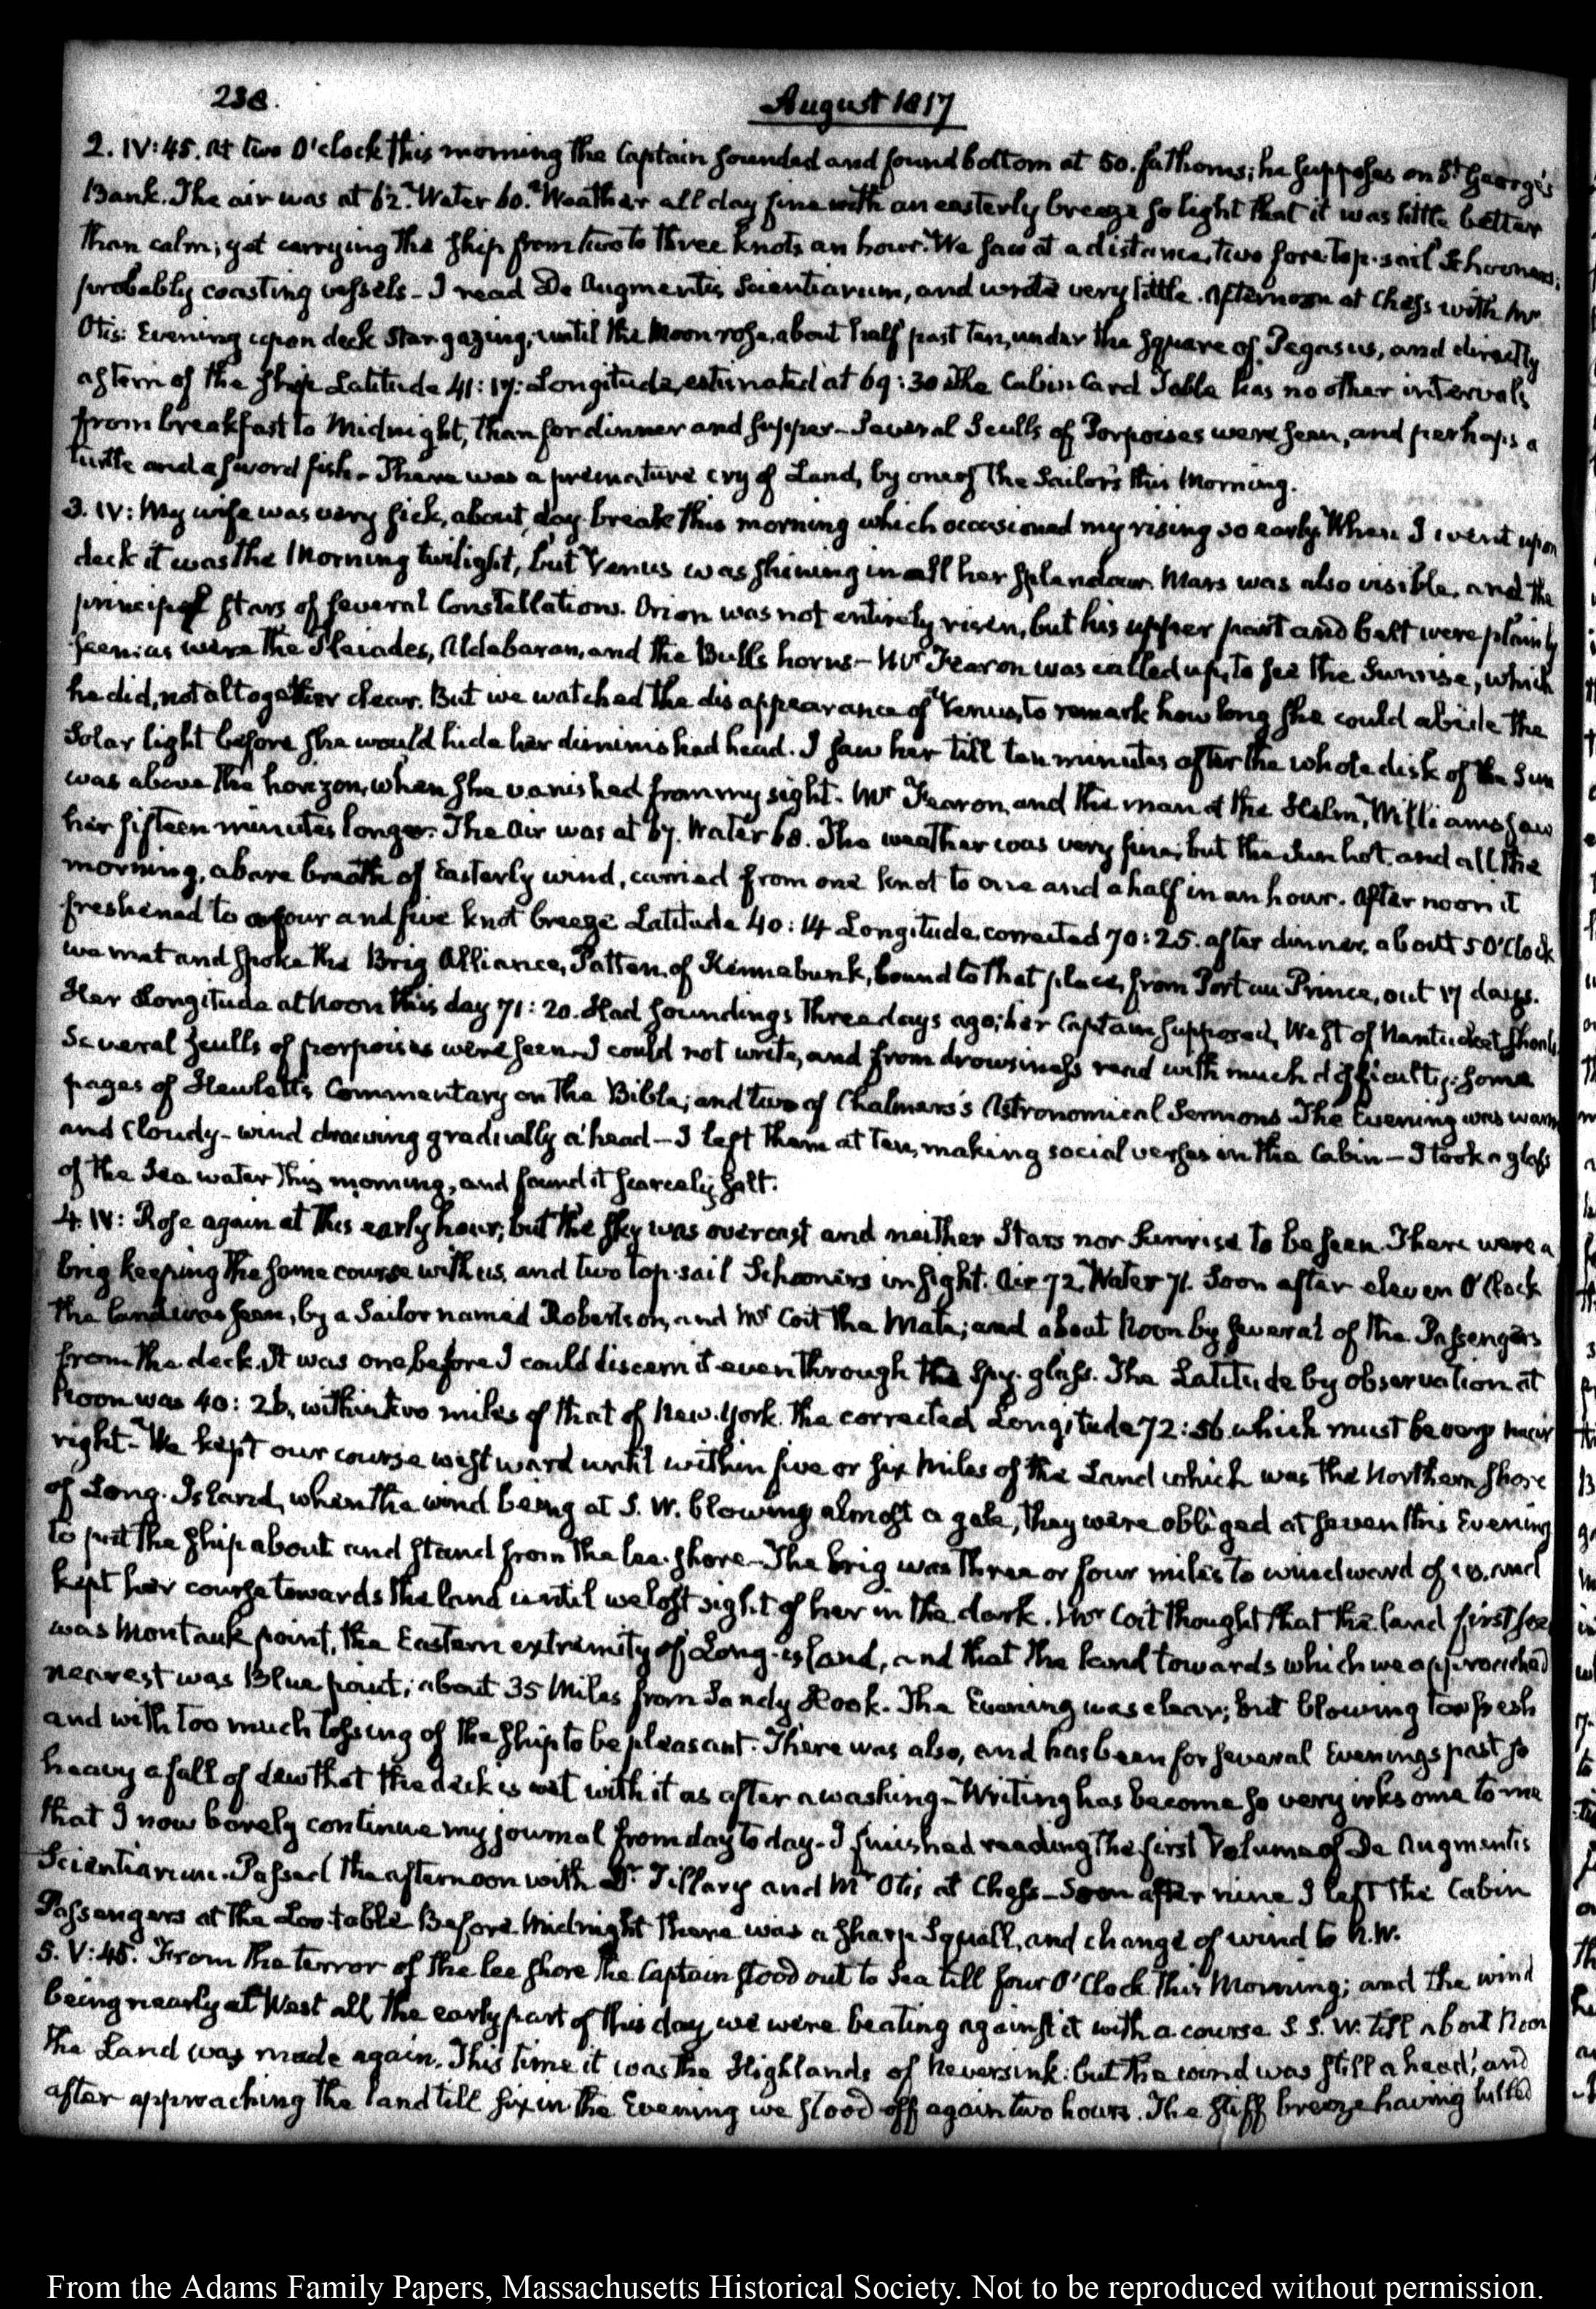 238.
August 1817
2. IV:45. At two O'Clock this morning the Captain sounded and found bottom at 50. fathoms; he supposes on St. George's
Bank. The air was at 62. Water 60. Weather all day fine with an easterly breeze so light that it was little better
than calm; yet carrying the ship from two to three knots an hour. We saw at a distance, two fore-top-sail Schooners;
probably coasting vessels - I read De Augmentis Scientiarum, and wrote very little. Afternoon at Chess with Mr
Otis: Evening upon deck Star gazing, until the Moon rose, about half past ten, under the Square of Pegasus, and directly
astern of the ship Latitude 41:17: Longitude, estimated at 69:30 The Cabin Card Table has no other intervals
from breakfast to Midnight, than for dinner and supper - Several Sculls of Porpoises were seen, and perhaps a
turtle and a sword fish - There was a premature cry of Land, by one of the Sailors this Morning.
3. IV: My wife was very sick, about day-break this morning which occasioned my rising so early. When I went upon
deck it was the Morning twilight, but Venus was shining in all her splendour. Mars was also visible, and the
principal stars of several Constellations. Orion was not entirely risen, but his upper part and belt were plainly
seen: as were the Pleiades, Aldebaran, and the Bulls horns - Mr Fearon was called up, to see the Sunrise, which
he did, not altogether clear. But we watched the disappearance of Venus, to remark how long she could abide the
Solar light before she would hide her diminished head. I saw her till ten minutes after the whole disk of the Sun
was above the horizon, when she vanished from my sight. Mr Fearon, and the man at the Helm, Williams saw
her fifteen minutes longer. The Air was at 67. Water 68. The weather was very fine; but the Sun hot, and all the
morning, a bare breath of Easterly wind, carried from one knot to one and a half in an hour. After noon it
freshened to a four and five knot breeze Latitude 40:14 Longitude, corrected 70:25. after dinner, about 5 O'Clock
we met and spoke the Brig Alliance, Patten, of Kennebunk, bound to that place, from Port au Prince, out 17 days.
Her Longitude at Noon this day 71:20. Had soundings three days ago; her Captain supposed, West of Nantucket Shoals
Several sculls of porpoises were seen. I could not write, and from drowsiness read with much difficulty: some
pages of Hewlett's Commentary on the Bible; and two of Chalmers's Astronomical Sermons. The Evening was warm
and Cloudy - wind drawing gradually a'head - I left them at Ten, making social verses in the Cabin - I took a glass
of the Sea water this morning, and found it scarcely salt.
4. IV: Rose again at this early hour; but the sky was overcast and neither Stars nor Sunrise to be seen. There were a
brig keeping the same course with us, and two top-sail Schooners in sight. Air 72. Water 71. Soon after eleven O'Clock
the land was seen, by a Sailor named Robertson, and Mr Coit the Mate; and about Noon by several of the Passengers
from the deck. It was one before I could discern it even through the spy-glass. The Latitude by observation at
Noon was 40:26, within two miles of that of New-York. The corrected Longitude 72:56 which must be very near
right - We kept our course westward until within five or six Miles of the Land which was the Northern shore
of Long-Island, when the wind being at S.W. blowing almost a gale, they were obliged at seven this Evening
to put the ship about and stand from the lee-shore - The brig was three or four miles to windward of us, and
kept her course towards the land until we lost sight of her in the dark. Mr Coit thought that the land first seen
was Montauk point, the Eastern extremity of Long-island, and that the land towards which we approached
nearest was Blue point; about 35 Miles from Sandy Hook. The Evening was clear; but blowing too fresh
and with too much tossing of the ship to be pleasant. There was also, and has been for several Evenings past so
heavy a fall of dew that the deck is wet with it as after a washing - Writing has become so very irksome to me
that I now barely continue my journal from day to day - I finished reading the first Volume of De Augmentis
Scientiarum. Passed the afternoon with Dr Tillary and Mr Otis at Chess - Soon after nine I left the Cabin
Passengers at the Loo-table. Before Midnight there was a sharp Squall, and change of wind to N.W.
5. V:45. From the terror of the lee shore the Captain stood out to Sea till four O'Clock this Morning; and the wind
being nearly at West all the early part of this day, we were beating against it with a course S.S.W. till about Noon
the Land was made again. This time it was the Highlands of Neversink: but the wind was still a head; and
after approaching the land till six in the Evening we stood off again two hours. The stiff breeze having lulled
From the Adams Family Papers, Massachusetts Historical Society. Not to be reproduced without permission.